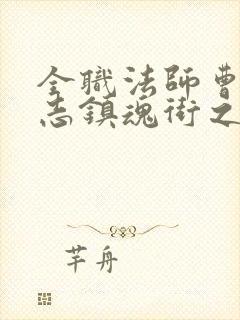 全職法師曹
志鎮魂街之
芊舟